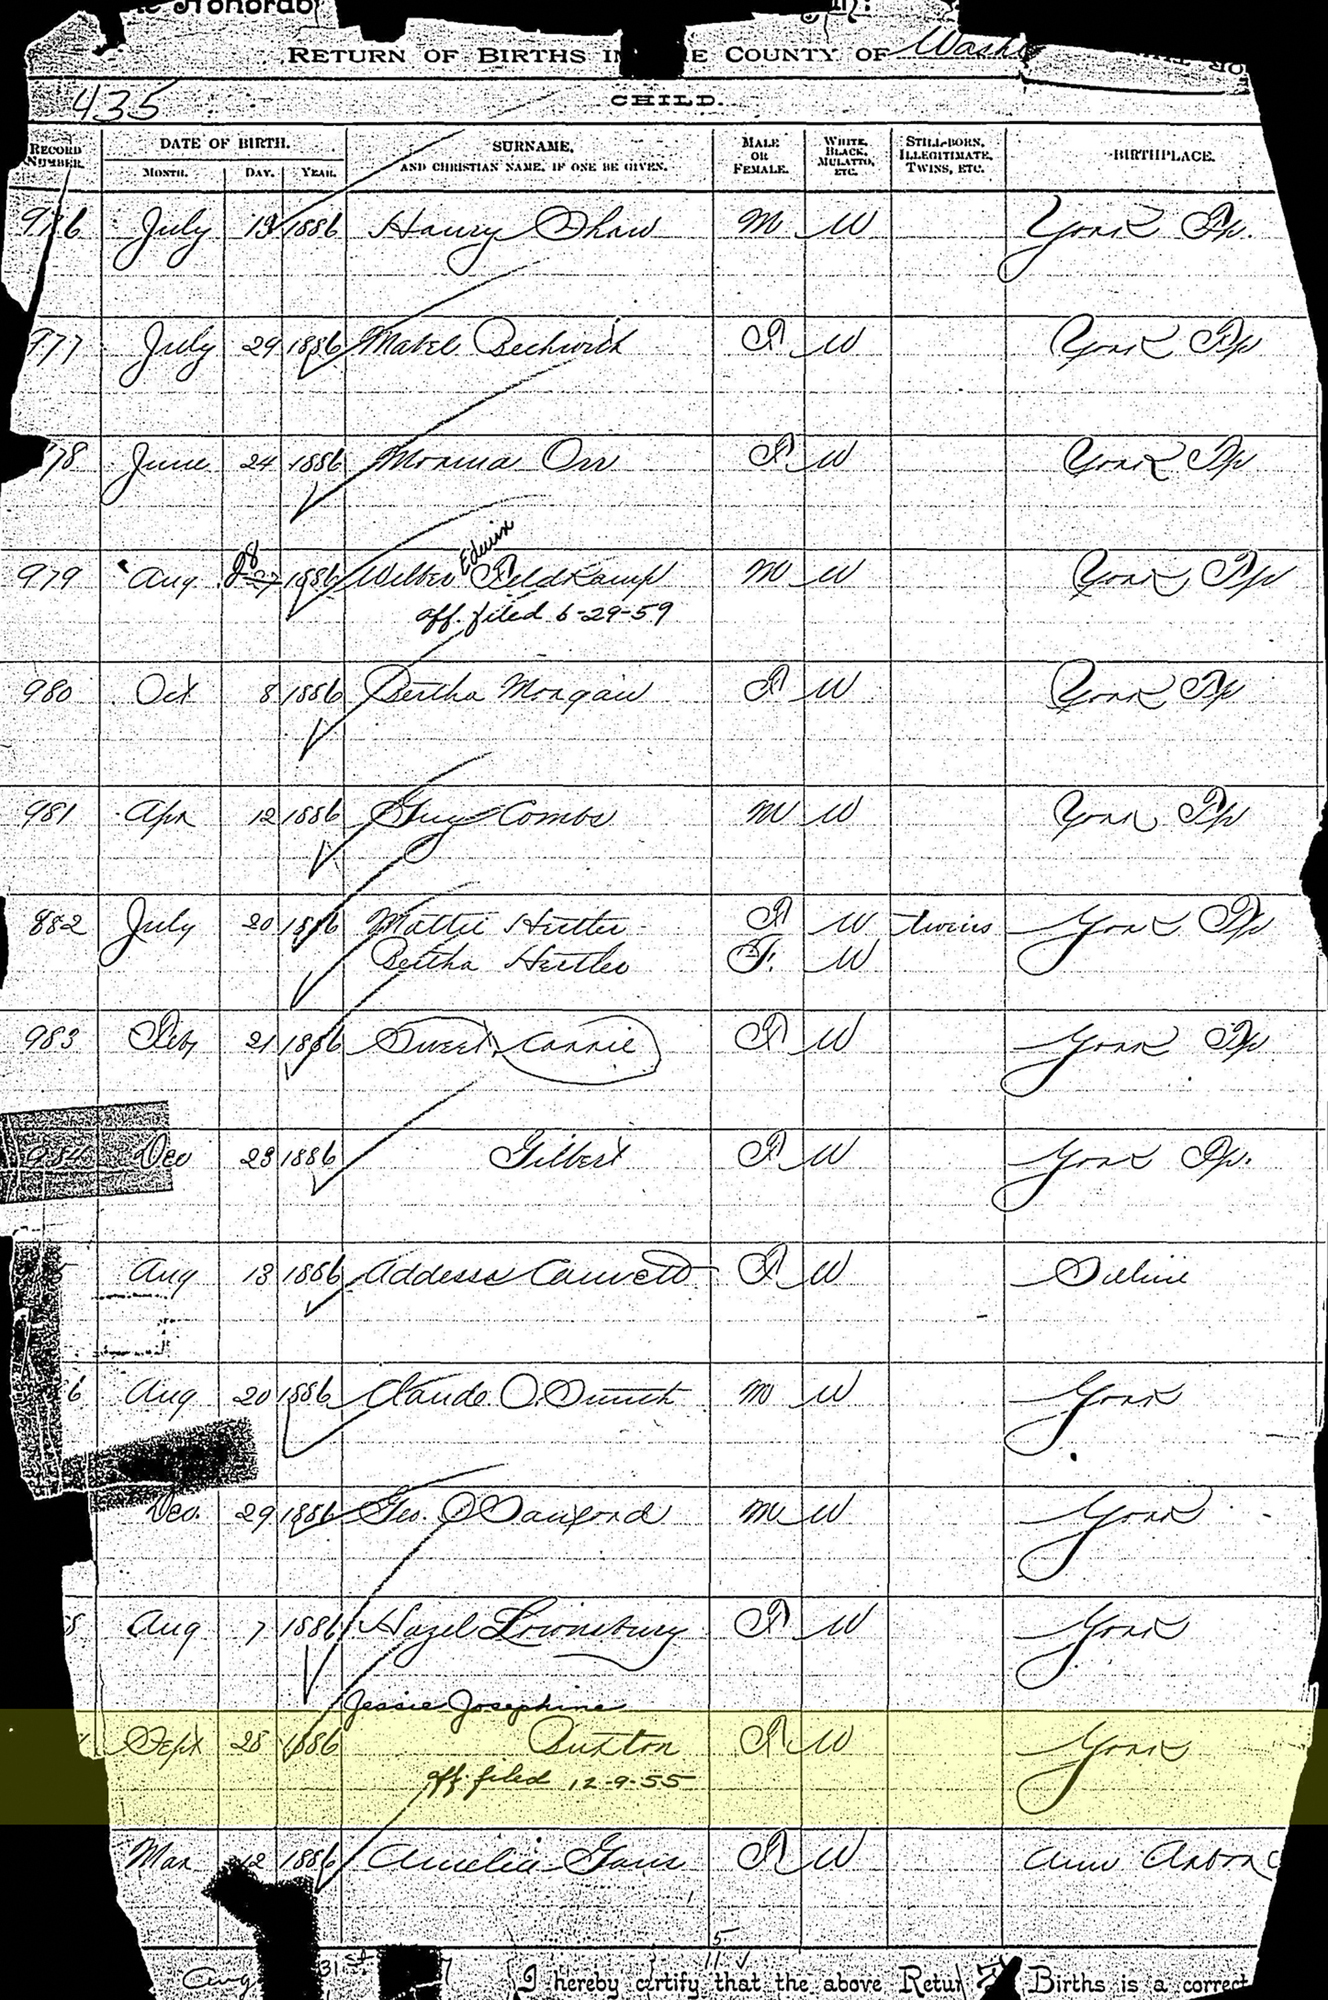 RETURN OF BIRTHS IN COUNTY OF Wash
435
CHILD.
RECORD NUMBER. DATE OF BIRTH. MONTH. DAY. YEAR. SURNAME, AND CHRISTIAN NAME, IF ONE BE GIVEN. MALE OR FEMALE. WHITE, BLACK, MULATTO, ETC. STILL-BORN, ILLEGITIMATE, TWINS, ETC. BIRTHPLACE.
976 July 1886 Shaw M W York Tp.
977 July 29 1886 Mabel Beckwith F W York Tp
78 June 24 1886 Orr F W York Tp
Edwin
979 Aug 28 27 1886 Feldkamp M W York Tp
aff. filed 6-29-59
980 Oct 8 1886 Bertha Morgan F W York Tp
981 Apr 12 1886 Guy Combs M W York Tp
882 July 20 1886 Mattie Hertler F W twins York Tp
Bertha Hertler F. W
983 Feby 21 1886 Sweet, Carrie F W York Tp
984 Dec 23 1886 Gilbert F W York Tp.
Aug 13 1886 F W Saline
6 Aug 20 1886 Claude O. M W York
Dec. 29 1886 Geo. O Sanford M W York
8 Aug 7 1886 Hazel Lounsbury F W York
Jessie Josephine
Sept 28 1886 Buxton F W York
aff. filed 12-9-55
Mar 12 1886 Amelia F W Ann Arbor
5
Aug 31st I hereby certify that the above Return Births is a correct